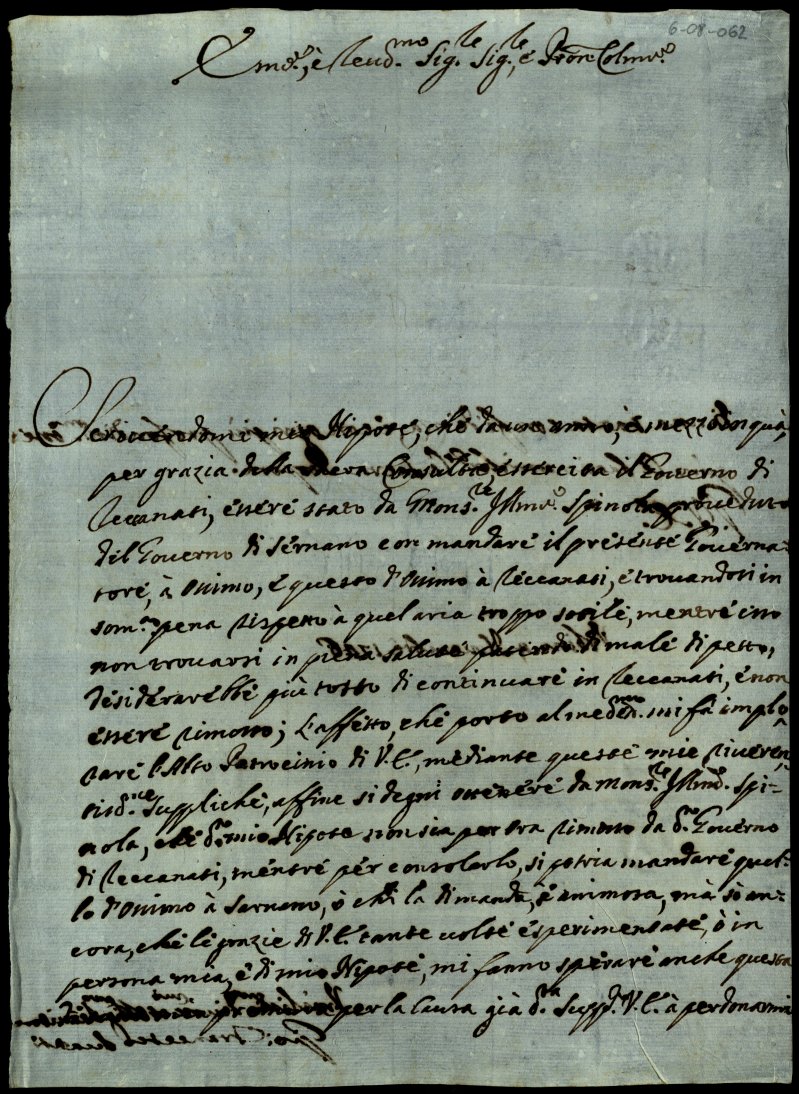 6-08-062
Em.º, è Reud.mo Sig.le Sig.le, è Pron Colmo.
Scriuendomi mio Nipote, che da un anno, è mezzo in quà,
per grazia della Sacra Consulta, essercita il Gouerno di
Reccanati, essere stato da Mons.re Illmo. Spinola proueduto
del Gouerno di Sernano con mandare il presente Gouerna=
tore, à Osimo, e questo d'Osimo à Reccanati, e trouandosi in
som.ª pena rispetto à quel aria troppo sotile, mentre esso
non trouarsi in piena salute patendo di male di petto,
desiderarebbe più tosto di continuare in Reccanati, è non
essere rimosso; L'affetto, che porto al med.mo mi fà implo
rare l'Alto Patrocinio di V.E., mediante queste mie riueren
tis.me suppliche, affine si degni ottenere da Mons.re Illmo. Spi=
nola, che d.º mio Nipote non sia per ora rimosso da d.º Gouerno
di Reccanati, mentre per consolarlo, si potria mandare quel=
lo d'Osimo à Sarnano, ò che la dimanda, è animosa, mà sò an=
cora, che le grazie di V.E. tante uolte esperimentate, ò in
persona mia, è di mio Nipote, mi fanno sperare anche questa
per la Causa già d.ta Supp.º V.E. à perdonarmi